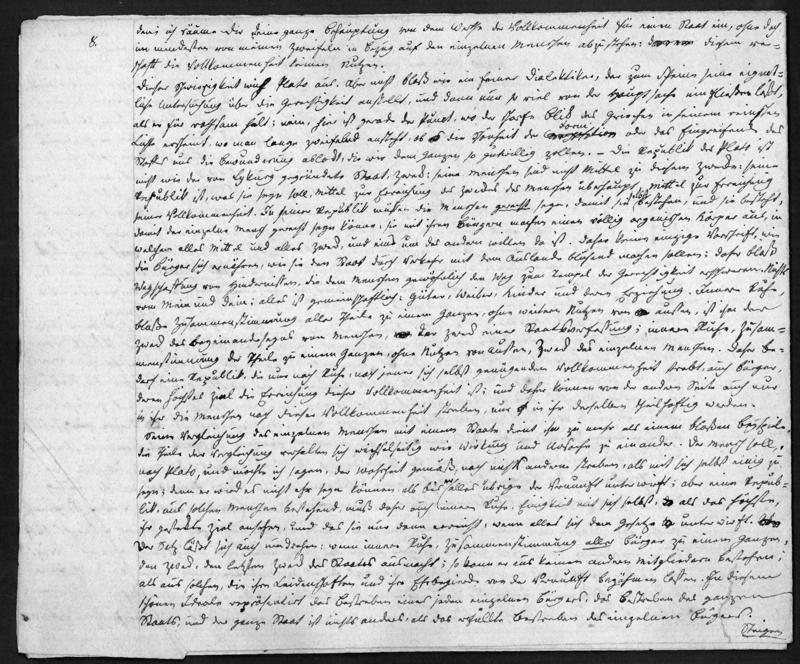 8.
denn ich räume dir deine ganze Behauptung von dem Werthe der Vollkommenheit für einen Staat ein, ohne doch
im mindesten von meinen Zweifeln in Bezug auf den einzelnen Menschen abzustehen: diesem ver-
schafft die Vollkommenheit keinen Nutzen.
Dieser Schwierigkeit wich Plato aus. Aber nicht bloß wie ein feiner Dialektiker, der zum Scheine seine eigent-
liche Untersuchung über die Gerechtigkeit anstellt, und dann nur so viel von der Hauptsache einfließen läßt,
als er für rathsam hält: nein, hier ist gerade der Punct, wo der scharfe Blick des Griechen in seinem reinsten
Lichte erscheint, wo man lange zweifelnd ansteht, ob die Schönheit der Form, oder das Eingreifende des
Stoffes uns die Bewunderung ablockt, die wir dem Ganzen so gutwillig zollen. – Die Republik des Plato ist
nicht wie der von Lykurg gegründete Staat, Zweck: seine Menschen sind nicht Mittel zu diesem Zwecke: seine
Republik ist, was sie seyn soll, Mittel zur Erreichung des Zweckes des Menschen überhaupt, Mittel zur Erreichung
seiner Vollkommenheit. In seiner Republik müßen die Menschen gerecht seyn, damit sie bestehe, und sie besteht,
damit der einzelne Mensch gerecht seyn könne, sie mit ihren Bürgern machen einen völlig organischen Körper aus, in
welchem alles Mittel und alles Zweck, und eins um des andern willen da ist. Daher keine einzige Vorschrift, wie
die Bürger sich ernähren, wie sie den Staat durch Verkehr mit dem Auslande blühend machen sollen: daher bloß
Wegschaffung von Hindernissen, die dem Menschen gewöhnlich den Weg zum Tempel der Gerechtigkeit erschweren. Nichts
von Mein und Dein: alles ist gemeinschaftlich: Güter, Weiber, Kinder und deren Erziehung. Innere Ruhe,
bloße Zusammenstimmung aller Theile zu einem Ganzen, ohne weitern Nutzen von außen, ist hier der
Zweck des Beyeinanderseyns von Menschen, der Zweck einer Staatsverfassung; innere Ruhe, Zusam-
menstimmung der Theile zu einem Ganzen, ohne Nutzen von Außen, Zweck des einzelnen Menschen. Daher be-
darf eine Republik, die nur nach Ruhe, nach jener sich selbst genügenden Vollkommenheit strebt, auch Bürger,
deren höchstes Ziel die Erreichung dieser Vollkommenheit ist; und daher können von der andern Seite auch nur
in ihr die Menschen nach dieser Vollkommenheit streben, nur in ihr derselben theilhaftig werden.
Seine Vergleichung des einzelnen Menschen mit einem Staate dient ihm zu mehr als einem bloßen Beyspiele,
die Theile der Vergleichung verhalten sich wechselseitig wie Wirkung und Ursache zu einander. Der Mensch soll,
nach Plato, und möchte ich sagen, der Wahrheit gemäß, nach nichts anderm streben, als mit sich selbst einig zu
seyn; denn er wird es nicht eher seyn können, als bis alles übrige der Vernunft unterwirft; aber eine Repub-
lik, aus solchen Menschen bestehend, muß daher auch innere Ruhe, Einigkeit mit sich selbst, als das höchste,
ihr gesteckte Ziel ansehen, und das sie nur dann erreicht, wenn alles sich dem Gesetze unterwirft.
Der Satz läßt sich auch umdrehen: wenn innere Ruhe, Zusammenstimmung aller Bürger zu einem Ganzen,
den Zweck, den letzten Zweck des Staats ausmacht; so kann er aus keinen andern Mitgliedern bestehen,
als aus solchen, die ihre Leidenschaften und ihre Ehrbegierde von der Vernunft bezähmen lassen. In diesem
schönen Ideale repräsentirt das Bestreben eines jeden einzelnen Bürgers, das Bestreben des ganzen
Staats, und der ganze Staat ist nichts anders, als das erfüllte Bestreben des einzelnen Bürgers.